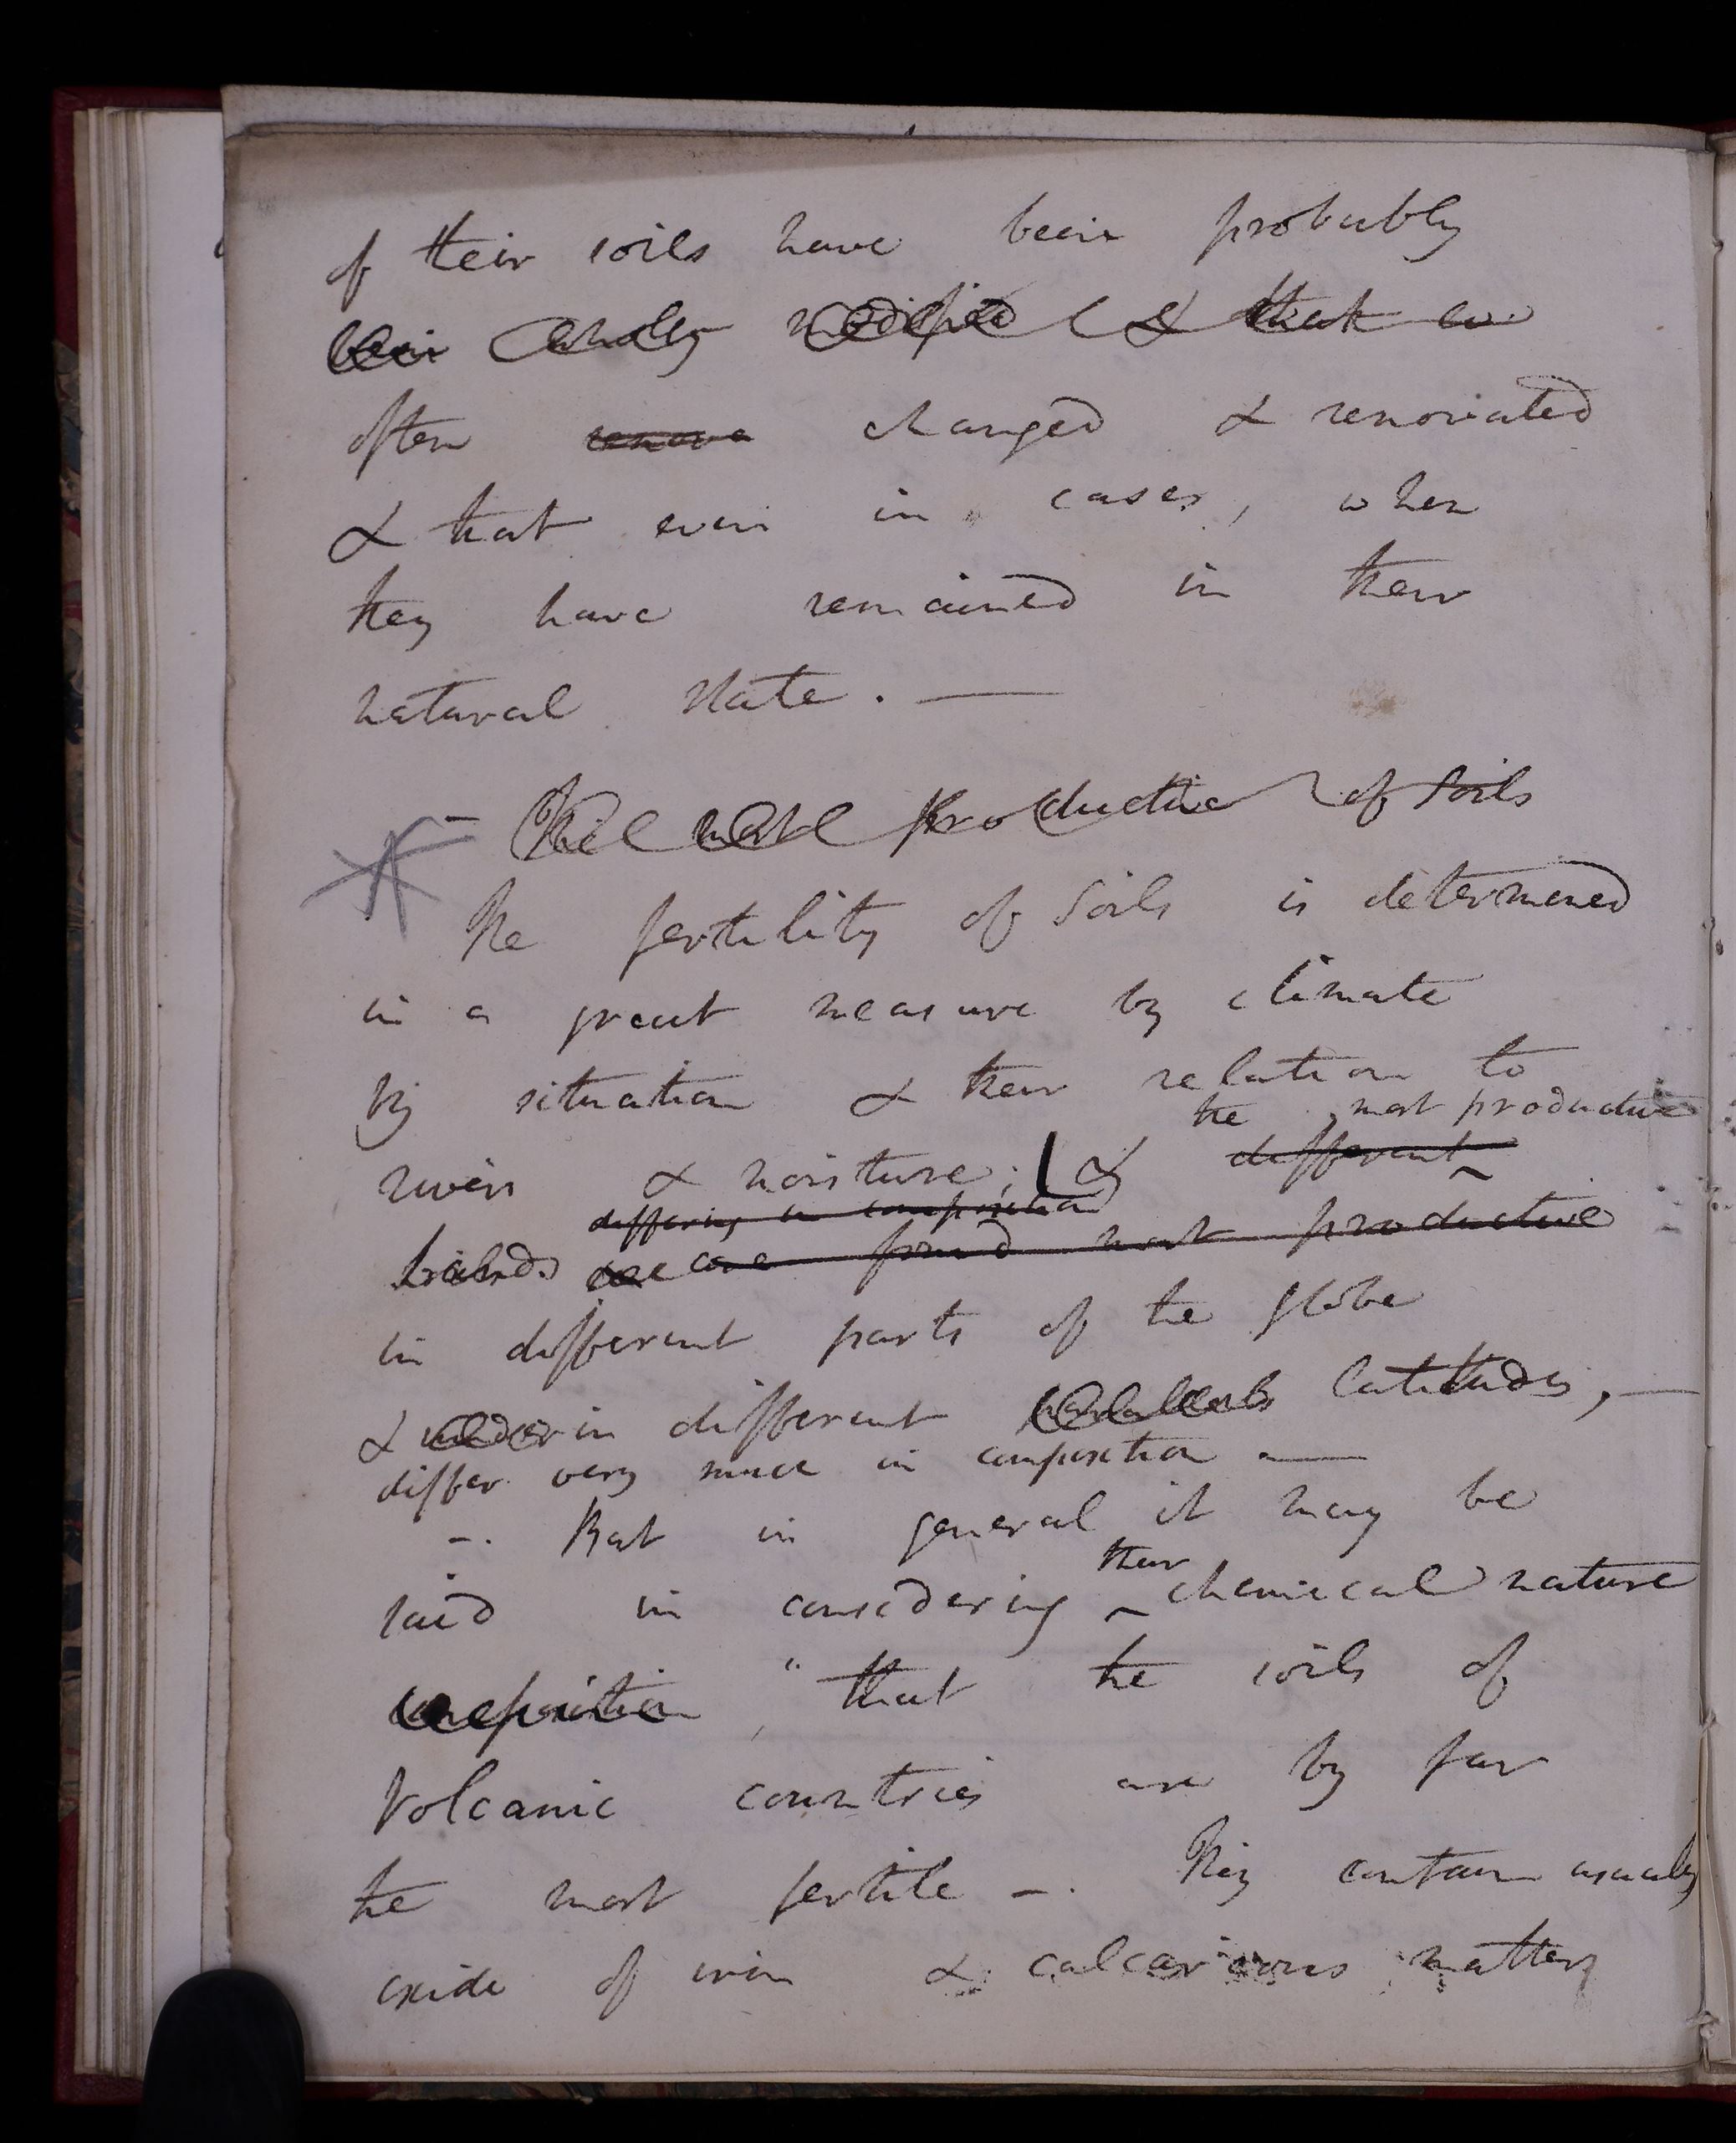 of their soils have been probably
been wholly modified & that ev
often renova changed & renovated
& that even in cases, when
they have remained in their
natural state. —
- The most productive of Soils
The fertility of Soils is determined
in a great measure by climate
by situation & their relation to
the most productive
rivers & moisture; & different
differing in composition
Lands are found most productive
in different parts of the globe
& under in different parallels latitudes, —
differ very much in composition —
-. But in general it may be
their
said in considering ^ chemical nature
composition, " that the soils of
Volcanic countries are by far
the most fertile -. They contain usually
oxide of iron & calcareous matter